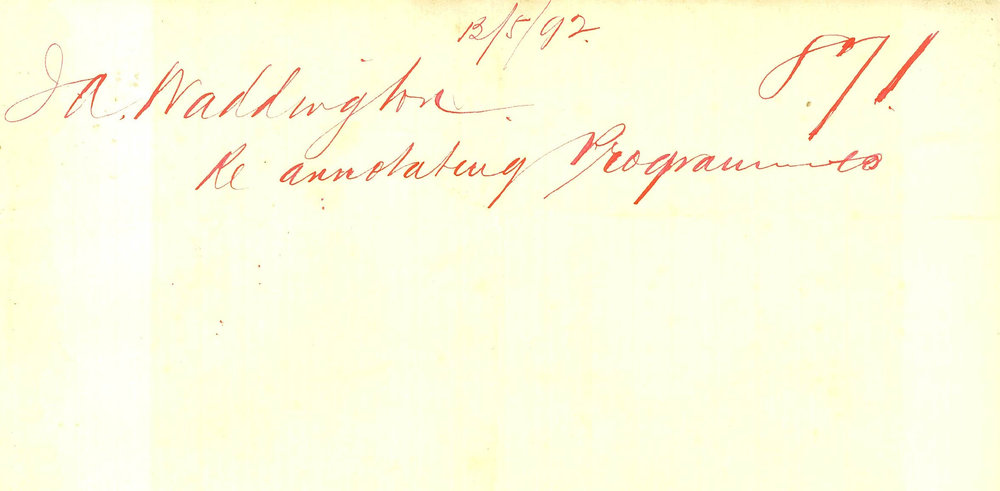 13/5/92.
J A. Waddington.
871.
Re annotating Programmes